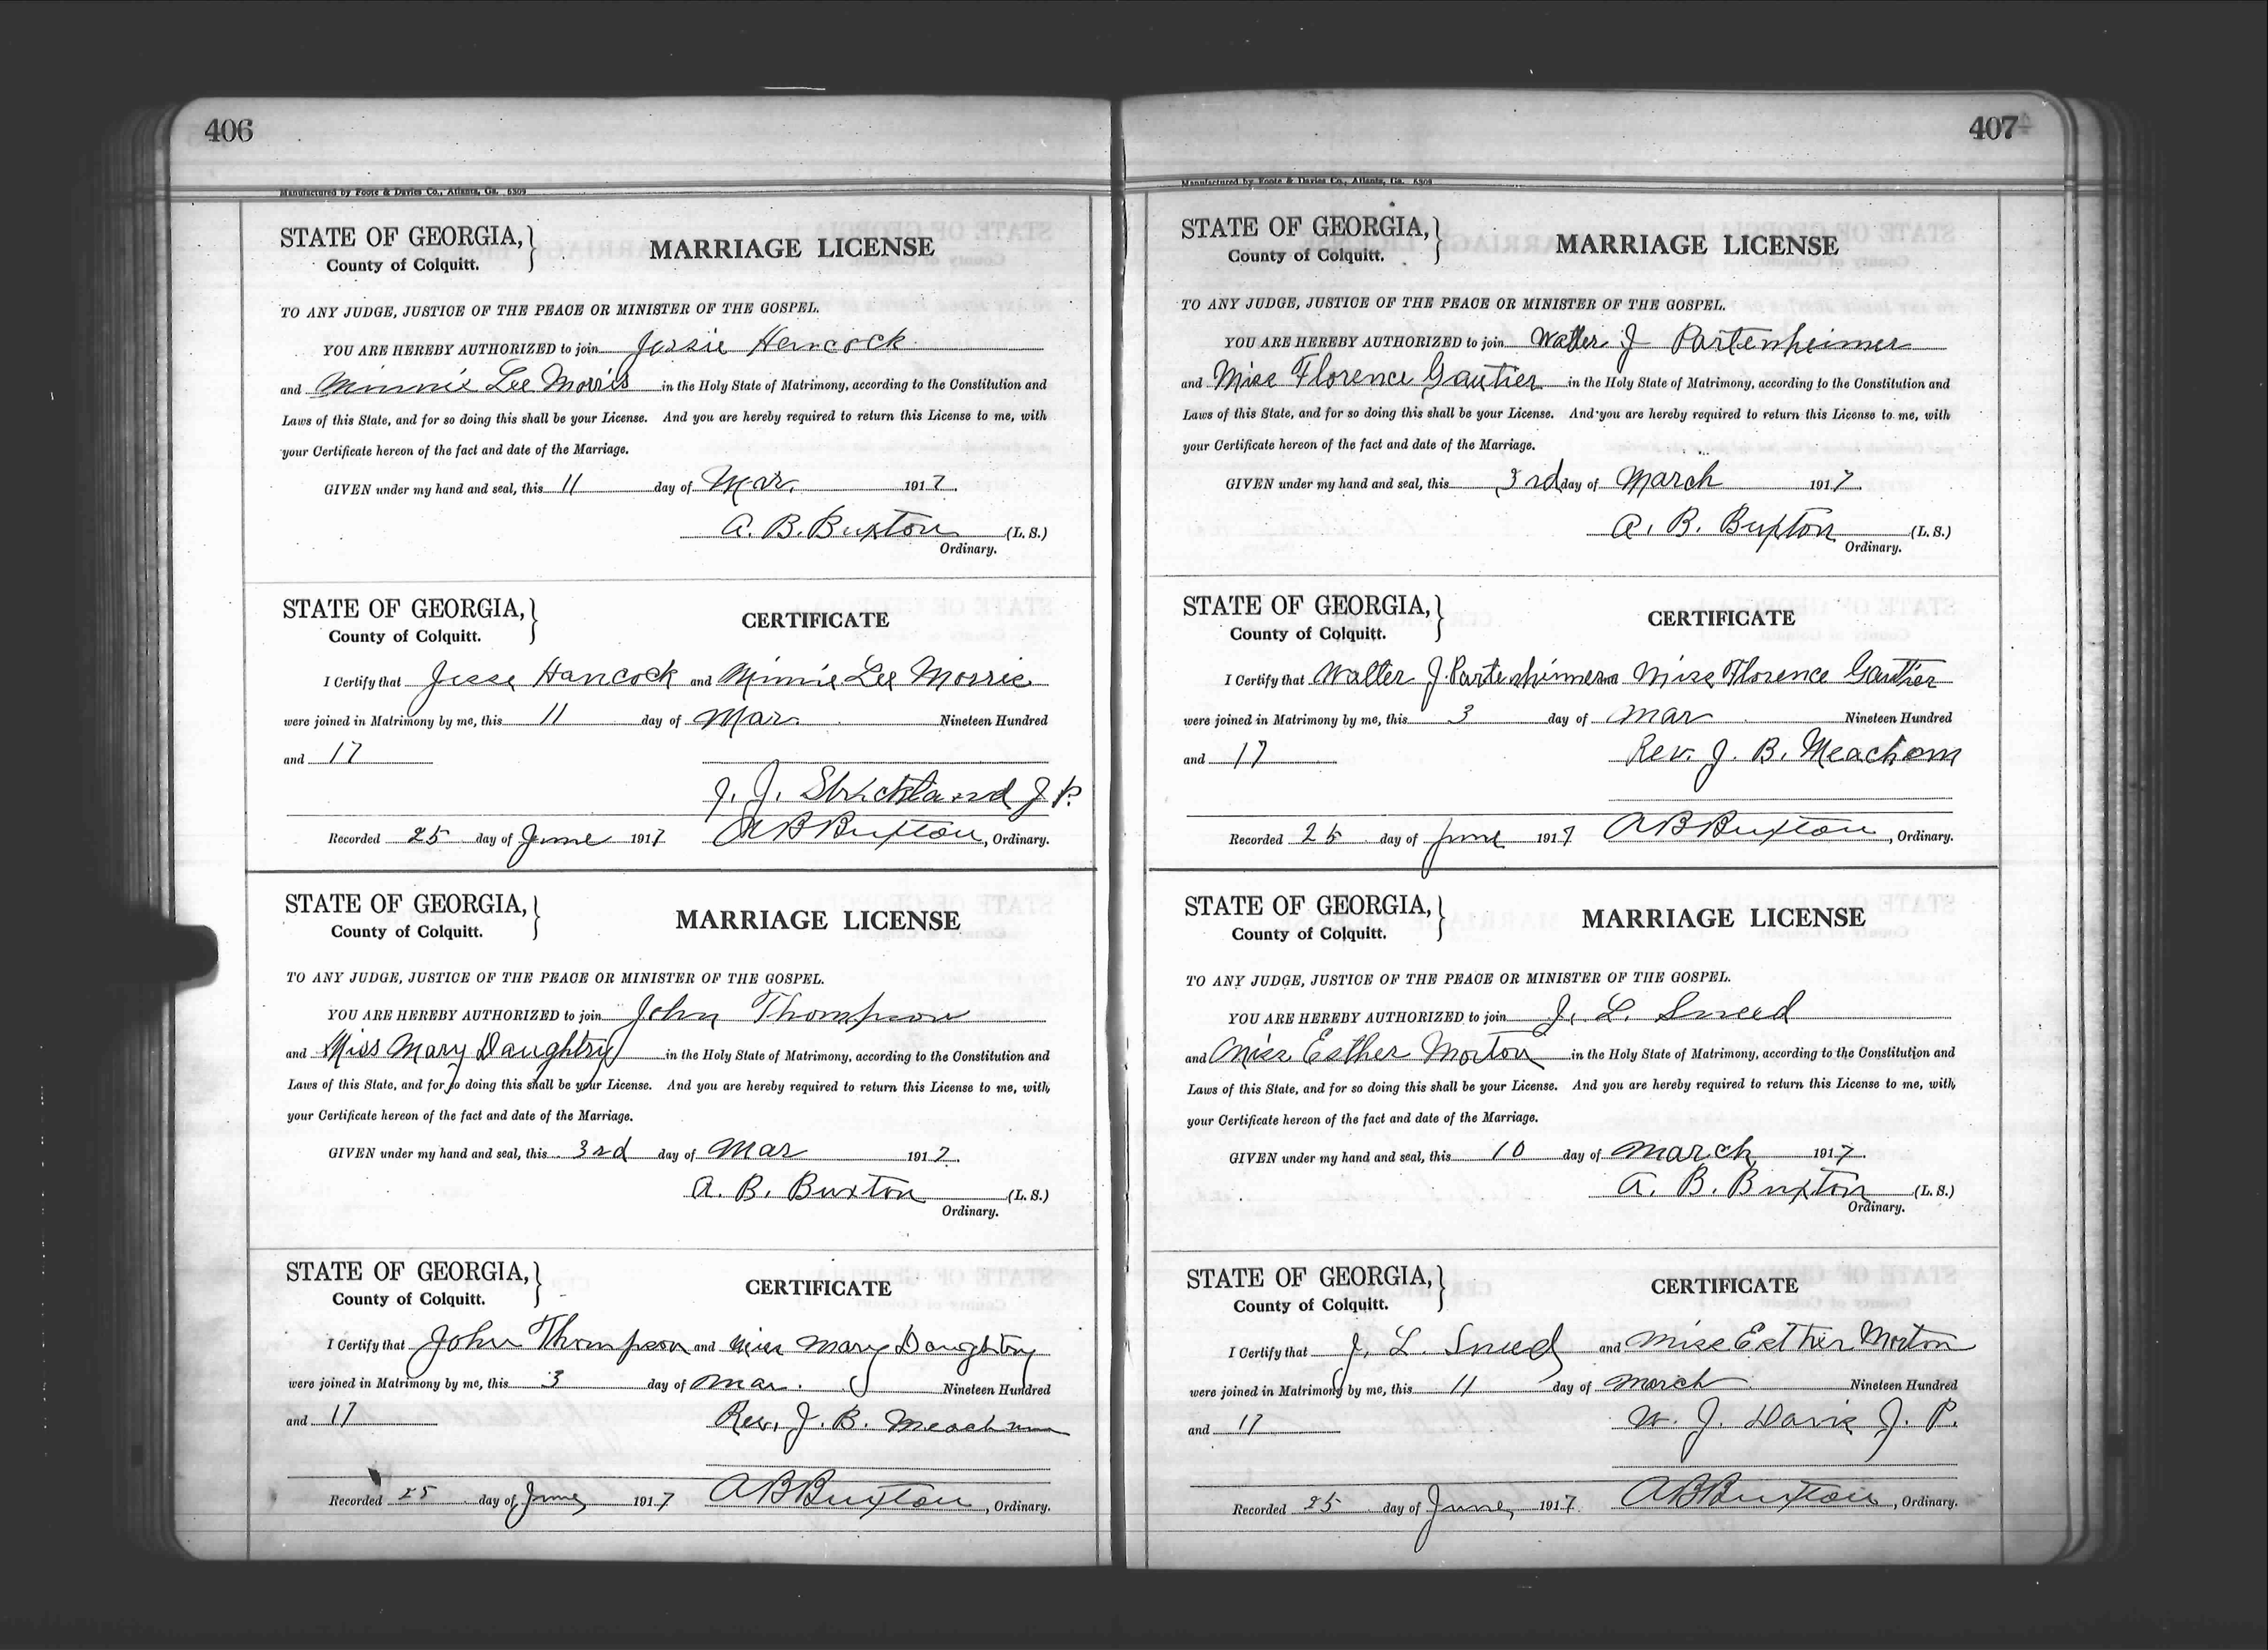 406
Manufactured by Foote & Davies Co., Atlanta, Ga. 6309
STATE OF GEORGIA,
County of Colquitt.
MARRIAGE LICENSE
TO ANY JUDGE, JUSTICE OF THE PEACE OR MINISTER OF THE GOSPEL.
YOU ARE HEREBY AUTHORIZED to join Jessie Hancock
and Minnie Lee Morris in the Holy State of Matrimony, according to the Constitution and
Laws of this State, and for so doing this shall be your License. And you are hereby required to return this License to me, with
your Certificate hereon of the fact and date of the Marriage.
GIVEN under my hand and seal, this 11 day of Mar. 1917.
A. B. Buxton (L. S.)
Ordinary.
STATE OF GEORGIA,
County of Colquitt.
CERTIFICATE
I Certify that Jesse Hancock and Minnie Lee Morris
were joined in Matrimony by me, this 11 day of Mar. Nineteen Hundred
and 17
J. J. Strickland J P.
Recorded 25 day of June 1917 A B Buxton, Ordinary.
STATE OF GEORGIA,
County of Colquitt.
MARRIAGE LICENSE
TO ANY JUDGE, JUSTICE OF THE PEACE OR MINISTER OF THE GOSPEL.
YOU ARE HEREBY AUTHORIZED to join John Thompson
and Miss Mary Daughtry in the Holy State of Matrimony, according to the Constitution and
Laws of this State, and for so doing this shall be your License. And you are hereby required to return this License to me, with
your Certificate hereon of the fact and date of the Marriage.
GIVEN under my hand and seal, this 3rd day of Mar 1917.
A. B. Buxton (L. S.)
Ordinary.
STATE OF GEORGIA,
County of Colquitt.
CERTIFICATE
I Certify that John Thompson and Miss Mary Daughtry
were joined in Matrimony by me, this 3 day of Mar. Nineteen Hundred
and 17
Rev. J. B. Meacham
Recorded 25 day of June 1917 A B Buxton, Ordinary.
407
Manufactured by Foote & Davies Co., Atlanta, Ga. 6309
STATE OF GEORGIA,
County of Colquitt.
MARRIAGE LICENSE
TO ANY JUDGE, JUSTICE OF THE PEACE OR MINISTER OF THE GOSPEL.
YOU ARE HEREBY AUTHORIZED to join Walter J Partenheimer
and Miss Florence Gautier in the Holy State of Matrimony, according to the Constitution and
Laws of this State, and for so doing this shall be your License. And you are hereby required to return this License to me, with
your Certificate hereon of the fact and date of the Marriage.
GIVEN under my hand and seal, this 3rd day of March 1917.
A. B. Buxton (L. S.)
Ordinary.
STATE OF GEORGIA,
County of Colquitt.
CERTIFICATE
I Certify that Walter J. Partenhimer Miss Florence Gautier
were joined in Matrimony by me, this 3 day of Mar Nineteen Hundred
and 17
Rev. J. B. Meacham
Recorded 25 day of June 1917 A B Buxton, Ordinary.
STATE OF GEORGIA,
County of Colquitt.
MARRIAGE LICENSE
TO ANY JUDGE, JUSTICE OF THE PEACE OR MINISTER OF THE GOSPEL.
YOU ARE HEREBY AUTHORIZED to join J. L. Sneed
and Miss Esther Morton in the Holy State of Matrimony, according to the Constitution and
Laws of this State, and for so doing this shall be your License. And you are hereby required to return this License to me, with
your Certificate hereon of the fact and date of the Marriage.
GIVEN under my hand and seal, this 10 day of March 1917.
A. B. Buxton (L. S.)
Ordinary.
STATE OF GEORGIA,
County of Colquitt.
CERTIFICATE
I Certify that J. L. Sneed and Miss Esther Morton
were joined in Matrimony by me, this 11 day of March Nineteen Hundred
and 17
W. J. Davis J. P.
Recorded 25 day of June 1917. A B Buxton, Ordinary.